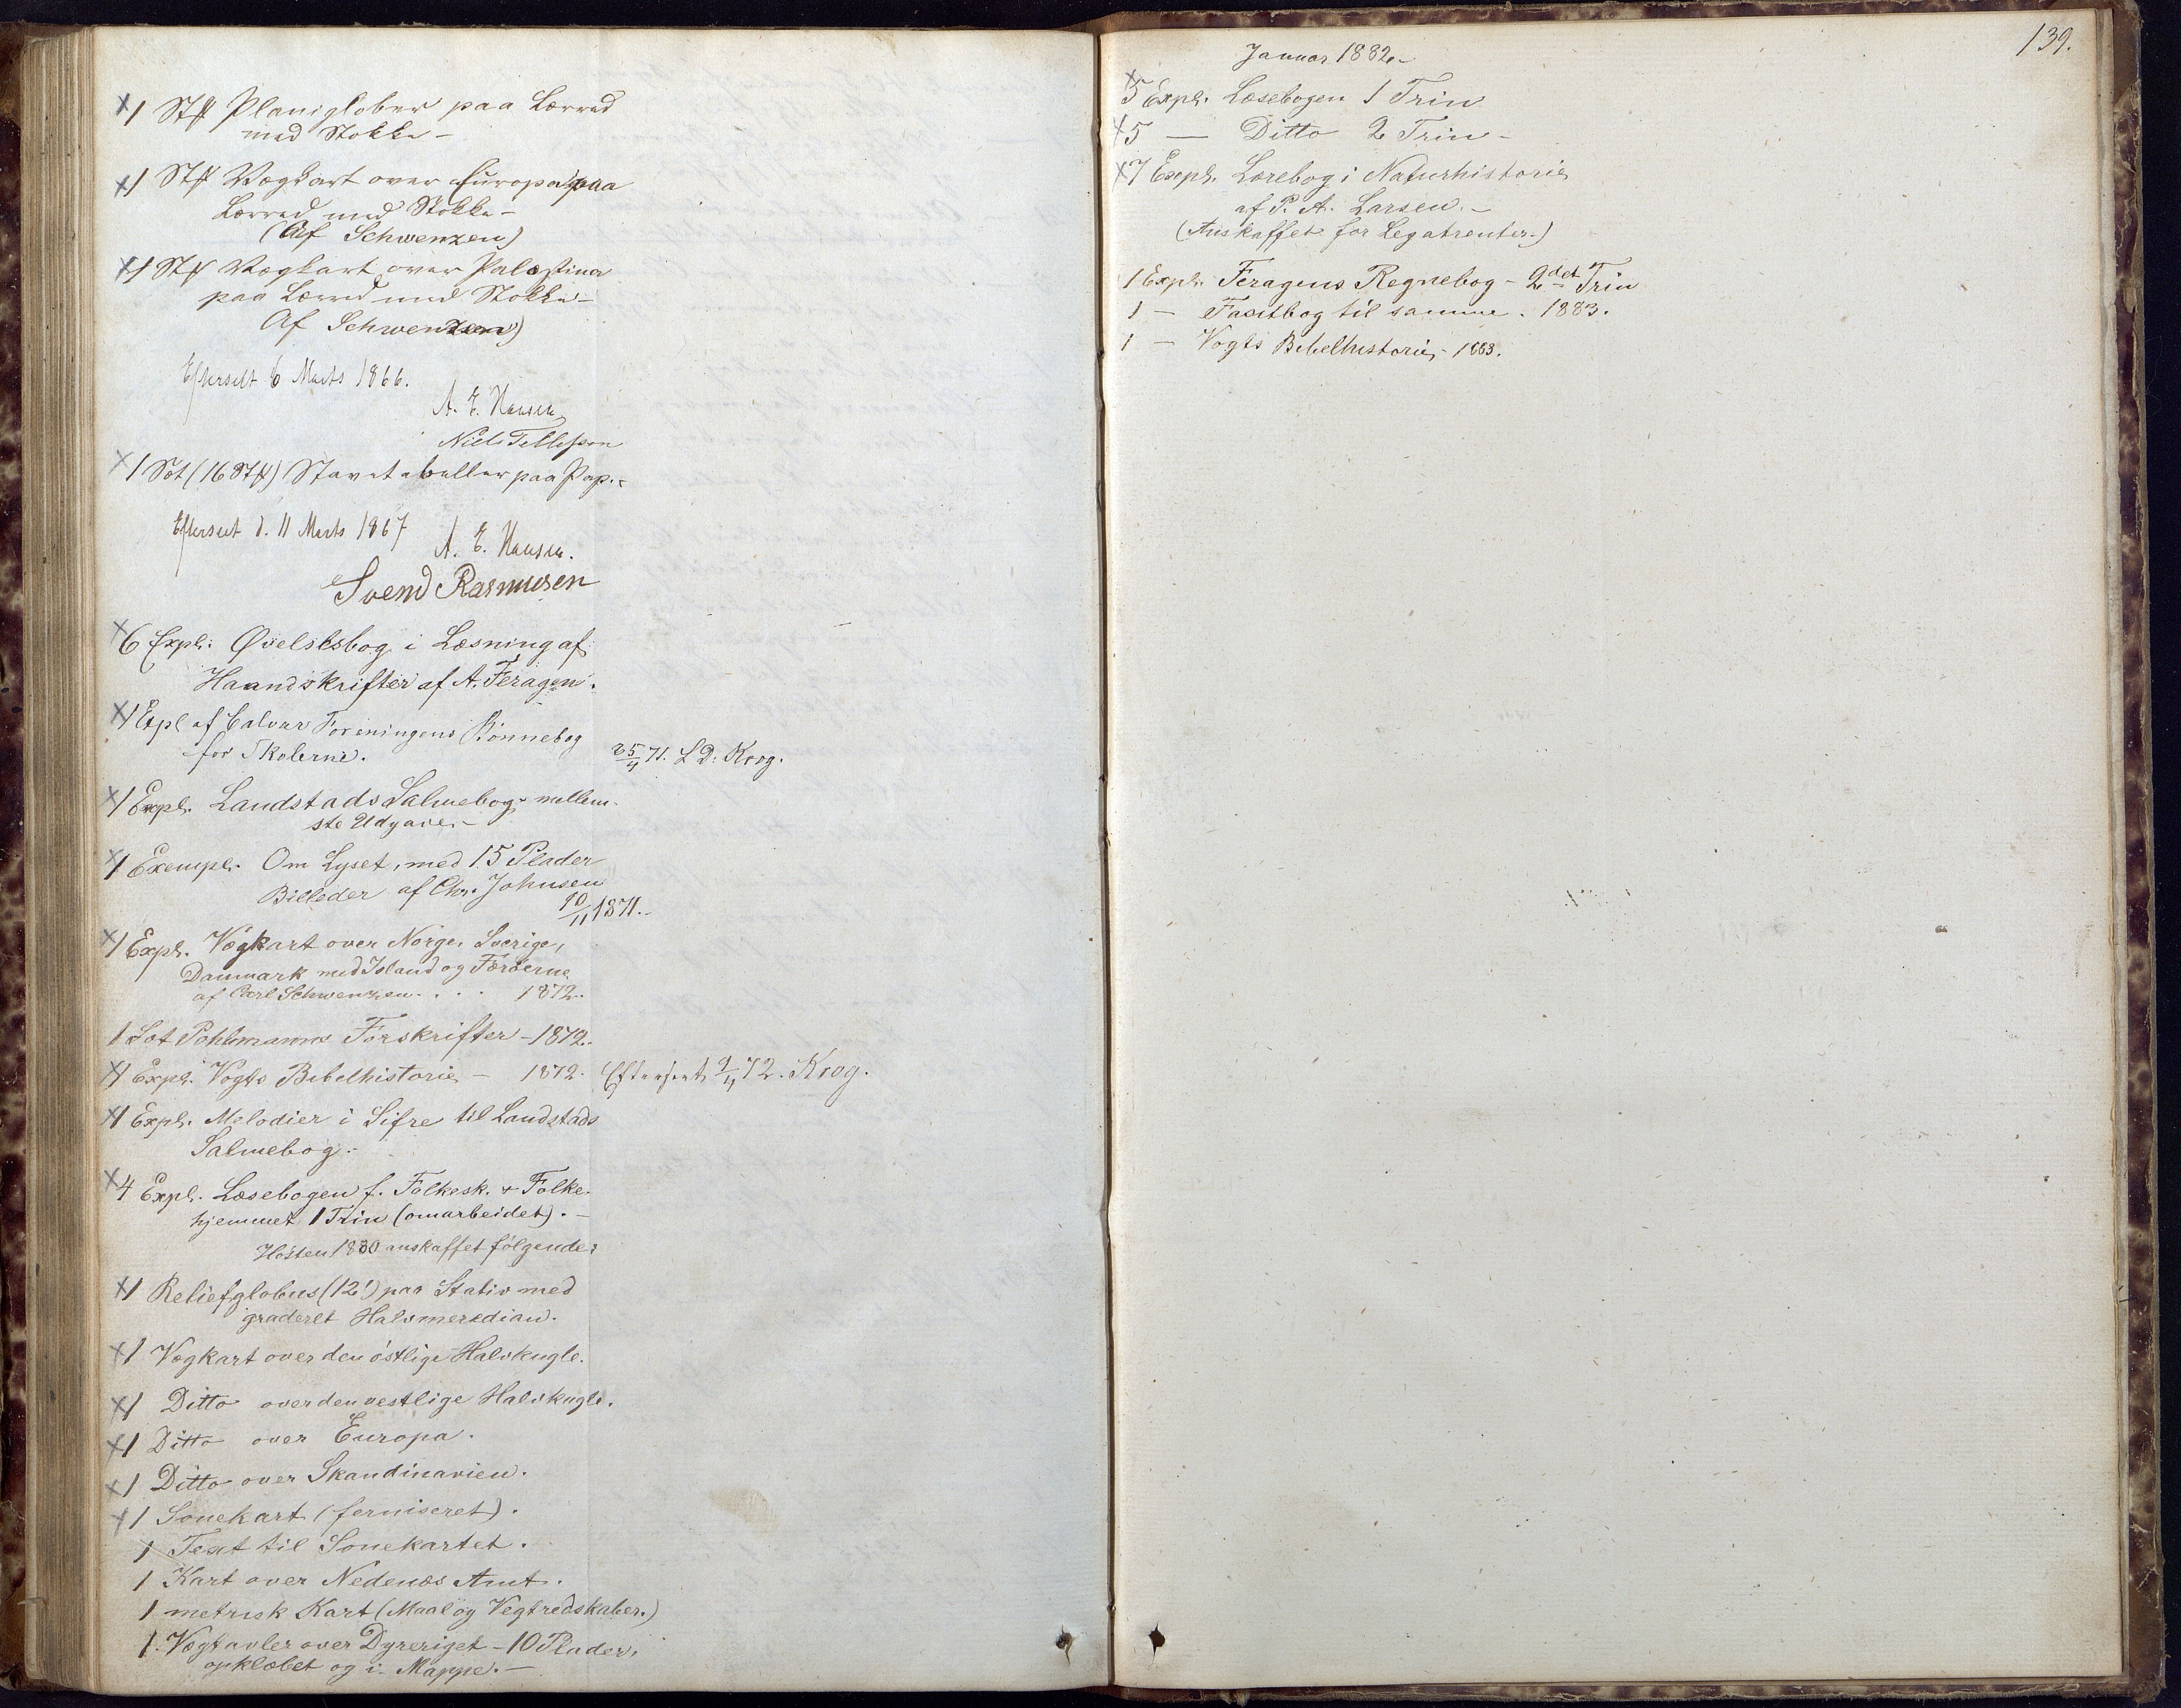 x1 Stk Planiglober paa Lærred
med Stokke –
x1 Stk Vægkart over Europa paa
Lærred med Stokke –
(Af Schwenzen)
x1 Stk Vægkart over Palæstina
paa Lærred med Stokke –
Af Schwenzen)
Efterseet 6 Marts 1866.
A. E. Hansen
Niels Tellefsen
x1 Sæt (16 Stk) Stavetabeller paa Pap. –
Efterseet d. 11 Marts 1867
A. E. Hansen.
Svend Rasmussen
x6 Expl: Øvelsesbog i Læsning af
Haandskrifter af A. Feragen.
x1 Expl af Calvar Foreningens Bønnebog
for Skolerne.
25/4 71. L D: Krog.
x1 Expl. Landstads Salmebog mellem-
ste Udgave. –
x1 Exempl. Om Lyset, med 15 Plader
Billeder af Chr. Johnsen
10/11 1871. –
x1 Expl. Vægkart over Norge, Sverige,
Danmark med Island og Færøerne
af Carl Schwenzen . . . 1872.
1 Sæt Pohlmanns Forskrifter – 1872.
x1 Expl. Vogts Bibelhistorie – 1872. Efterseet 9/4 72. Krog.
x1 Expl. Melodier i Sifre til Landstads
Salmebog. –
x4 Expl. Læsebogen f. Folkesk. & Folke-
hjemmet 1 Trin (omarbeidet). –
Høsten 1880 anskaffet følgende:
x1 Reliefglobus (12") paa Stativ med
graderet Halvmeredian.
x1 Vægkart over den østlige Halvkugle.
x1 Ditto over den vestlige Halvkugle.
x1 Ditto over Europa.
x1 Ditto over Skandinavien.
x1 Sonekart (ferniseret).
1 Text til Sonekartet.
1 Kart over Nedenæs Amt.
1 metrisk Kart (Maal og Vegtredskaber.)
1. Vægtavler over Dyreriget – 10 Plader,
opklæbet og i Mappe. –
139.
Januar 1882. –
x5 Expl. Læsebogen 1 Trin
x5 — Ditto 2 Trin –
x7 Exepl. Lærebog i Naturhistorie
af P. A. Larsen. –
(Anskaffet for Legatrenter.)
1 Expl. Feragens Regnebog – 2det Trin
1 – Facitbog til samme. 1883.
1 – Vogts Bibelhistorie, 1883.